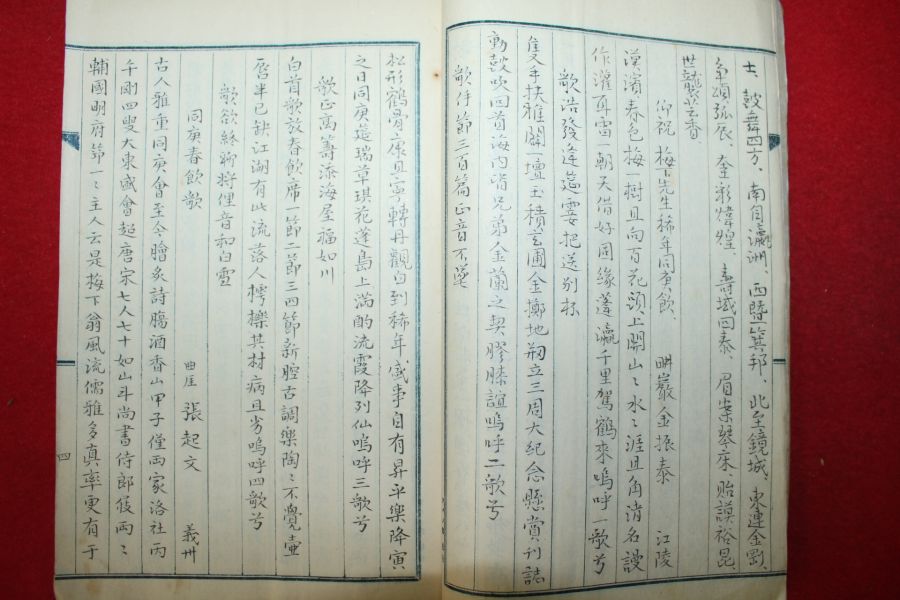 士、鼓舞四方、南自瀛洲、西暨箕邦、北至鏡城、東連金剛、
弧辰、奎彩煒煌、壽域回泰、眉案琴床、貽謨裕昆、
世襲芸香、
仰祝 梅下先生稀年同庚飮、 畊巖金振泰 江陵
漢濱春色梅一樹且向百花頭上開山〻水〻涯且角清名謾
作灌耳雷一朝天借好因緣蓬瀛千里駕鶴來嗚呼一歌兮
歌浩發逢筵要把送别杯
隻手扶雅闢一壇玉積玄圃金擲地刱立三周大紀念懸賞刊誌
動鼓吹回首海内皆兄弟金蘭之契膠膝誼嗚呼二歌兮
歌何節三百篇正音不墜
松形鶴骨康且寧轉丹觀白到稀年盛事自有昇平樂降寅
之日同庚筵瑞草琪花蓬島上滿酌流霞降列仙嗚呼三歌兮
歌正高壽添海屋福如川
白首歌放春飮席一節二節三四節新腔古調樂陶〻不覺壷
唇半已缺江湖有此流落人樗櫟其材病且劣嗚呼四歌兮
歌欲終聊將俚音和白雪
同庚春飮歌 曲厓 張起文 義州
古人雅重同庚會至今膾炙詩腸酒香山甲子僅両家洛社丙
午剛四叟大東盛會起唐宋七人七十如山斗尚書侍郎伎両〻
輔國明府節一〻主人云是梅下翁風流儒雅多真率更有于
四